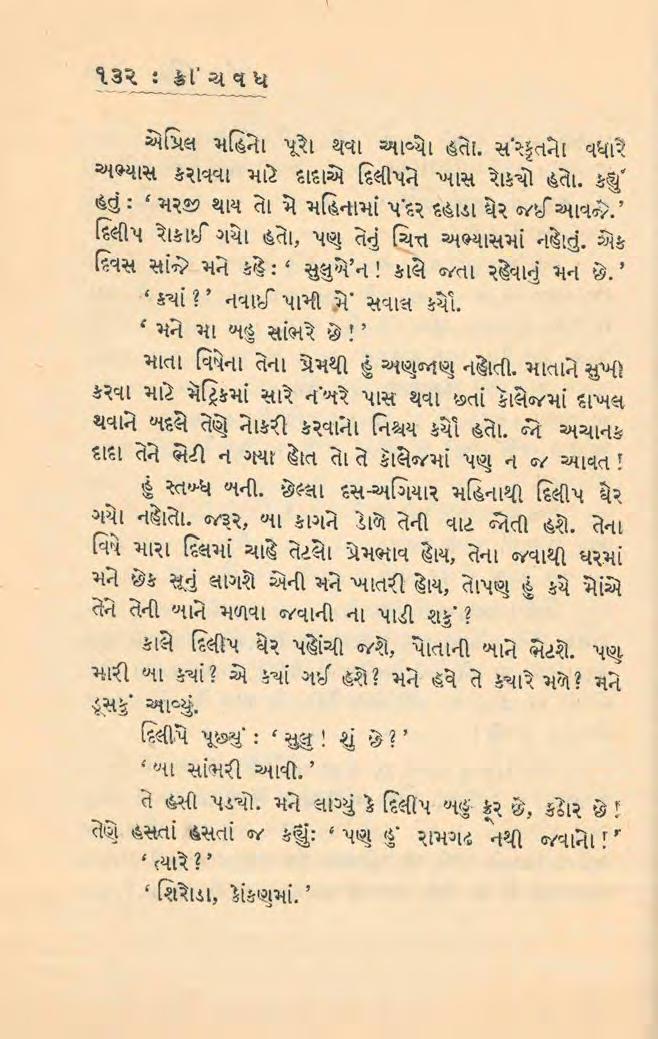 ૧૩૨ : ક્રૌંચવધ
એપ્રિલ મહિનો પૂરો થવા આવ્યો હતો. સંસ્કૃતનો વધારે
અભ્યાસ કરાવવા માટે દાદાએ દિલીપને ખાસ રોકચો હતો. કહ્યું
હતું : ‘ મરજી થાય તો મે મહિનામાં પંદર દહાડા ઘેર જઈ આવજે.’
દિલીપ રોકાઈ ગયો હતો, પણ તેનું ચિત્ત અભ્યાસમાં નહોતું. એક
દિવસ સાંજે મને કહે : ‘ સુલુબે’ન ! કાલે જતા રહેવાનું મન છે.’
‘ ક્યાં ? ’ નવાઈ પામી મેં સવાલ કર્યો.
‘ મને મા બહુ સાંભરે છે ! ’
માતા વિષેના તેના પ્રેમથી હું અણજાણ નહોતી. માતાને સુખી
કરવા માટે મૅટ્રિકમાં સારે નંબરે પાસ થવા છતાં કૉલેજમાં દાખલ
થવાને બદલે તેણે નોકરી કરવાનો નિશ્ચય કર્યો હતો. જો અચાનક
દાદા તેને ભેટી ન ગયા હોત તો તે કૉલેજમાં પણ ન જ આવત !
હું સ્તબ્ધ બની. છેલ્લા દસ-અગિયાર મહિનાથી દિલીપ ઘેર
ગયો નહોતો. જરૂર, બા કાગને ડોળે તેની વાટ જોતી હશે. તેના
વિષે મારા દિલમાં ચાહે તેટલો પ્રેમભાવ હોય, તેના જવાથી ઘરમાં
મને છેક સૂનું લાગશે એની મને ખાતરી હોય, તોપણ હું કયે મોંએ
તેને તેની બાને મળવા જવાની ના પાડી શકું ?
કાલે દિલીપ ઘેર પહોંચી જશે, પોતાની બાને ભેટશે. પણ
મારી બા ક્યાં ? એ ક્યાં ગઈ હશે ? મને હવે તે ક્યારે મળે ? મને
ડૂસકું આવ્યું.
દિલીપે પૂછ્યું : ‘ સુલુ ! શું છે ? ’
‘ બા સાંભરી આવી. ’
તે હસી પડચો. મને લાગ્યું કે દિલીપ બહુ ક્રૂર છે, કઠોર છે !
તેણે હસતાં હસતાં જ કહ્યું : ‘ પણ હું રામગઢ નથી જવાનો ! ’
‘ ત્યારે ? ’
‘ શિરોડા, કોંકણમાં. ’